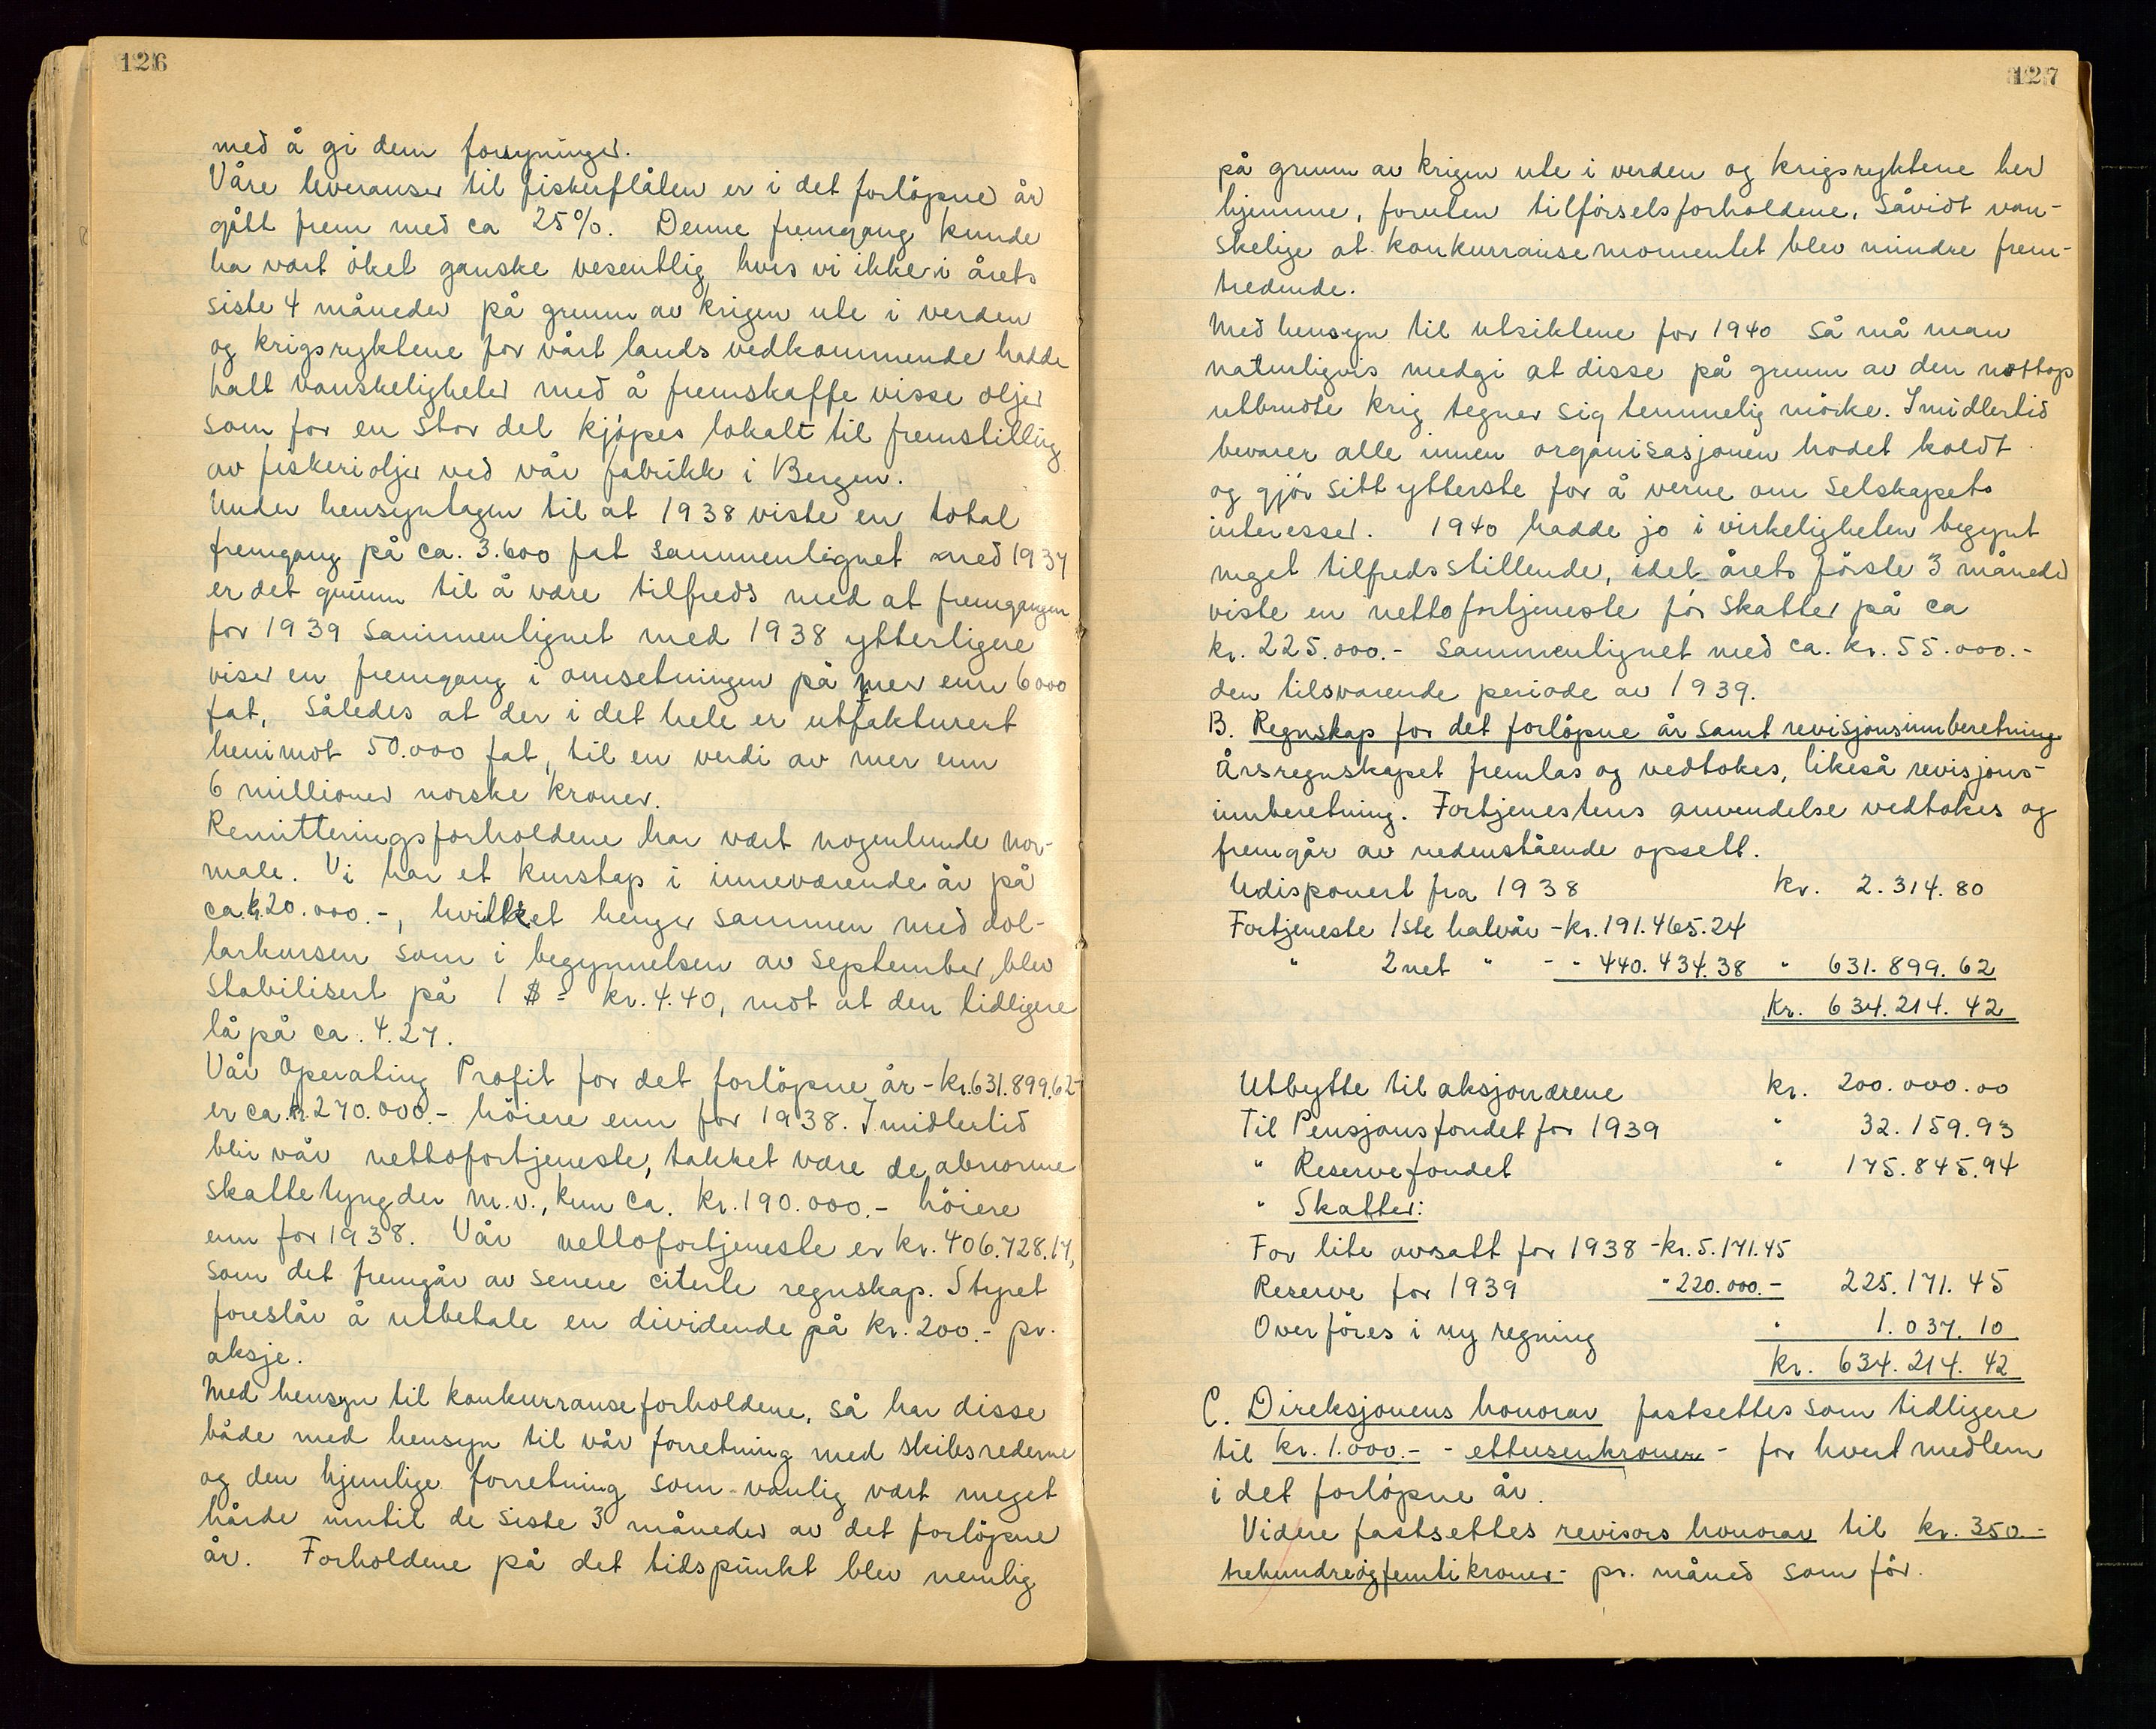 126
med å gi dem forsyninger.
Våre leveranser til fiskerflåten er i det forlöpne år
gått frem med ca 25%. Denne fremgang kunde
ha vært öket ganske vesentlig hvis vi ikke i årets
siste 4 måneder på grunn av krigen ute i verden
og krigsryktene for vårt lands vedkommende hadde
hatt vanskeligheter med å fremskaffe visse oljer
som for en stor del kjöpes lokalt til fremstilling
av fiskerioljer ved vår fabrikk i Bergen.
Under hensyntagen til at 1938 viste en total
fremgang på ca. 3.600 fat sammenlignet med 1937
er det grunn til å være tilfreds med at fremgangen
for 1939 sammenlignet med 1938 ytterligere
viser en fremgang i omsetningen på mer enn 6000
fat, således at der i det hele er utfakturert
henimot 50.000 fat, til en verdi av mer enn
6 millioner norske kroner.
Remitteringsforholdene har vært nogenlunde nor-
male. Vi har et kurstap i inneværende år på
ca. kr. 20.000.-, hvilket henger sammen med dol-
larkursen som i begynnelsen av september blev
stabilisert på 1 $ = kr. 4.40, mot at den tidligere
lå på ca. 4.27.
Vår Operating Profit for det forlöpne år - kr. 631.899.62-
er ca. kr. 270.000.- höiere enn for 1938. Imidlertid
blir vår nettofortjeneste, takket være de abnorme
skattetyngder m.v., kun ca. kr. 190.000.- höiere
enn for 1938. Vår nettofortjeneste er kr. 406.728.17,
som det fremgår av senere citerte regnskap. Styret
foreslår å utbetale en dividende på kr. 200.- pr.
aksje.
Med hensyn til konkurranseforholdene, så har disse
både med hensyn til vår forretning med skibsrederne
og den hjemlige forretning som vanlig vært meget
hårde inntil de siste 3 måneder av det forlöpne
år. Forholdene på det tidspunkt blev nemlig
127
på grunn av krigen ute i verden og krigsryktene her
hjemme, foruten tilförselsforholdene, såvidt van-
skelige at konkurransemomentet blev mindre frem-
tredende.
Med hensyn til utsiktene for 1940 så må man
naturligvis medgi at disse på grunn av den nettop
utbrudte krig tegner sig temmelig mörke. Imidlertid
bevarer alle innen organisasjonen hodet koldt
og gjör sitt ytterste for å verne om Selskapets
interesser. 1940 hadde jo i virkeligheten begynt
meget tilfredsstillende, idet årets förste 3 måneder
viste en nettofortjeneste för skatter på ca
kr. 225.000.- sammenlignet med ca. kr. 55.000.-
den tilsvarende periode av 1939.
B. Regnskap for det forlöpne år samt revisjonsinnberetning.
Årsregnskapet fremlas og vedtokes, likeså revisjons-
innberetning. Fortjenestens anvendelse vedtokes og
fremgår av nedenstående opsett.
Udisponert fra 1938 kr. 2.314.80
Fortjeneste 1ste halvår - kr. 191.465.24
" 2net " - " 440.434.38 " 631.899.62
kr. 634.214.42
Utbytte til aksjonærene kr. 200.000.00
Til Pensjonsfondet for 1939 " 32.159.93
" Reservefondet " 175.845.94
" Skatter:
For lite avsatt for 1938 - kr. 5.171.45
Reserve for 1939 " 220.000.- 225.171.45
Overföres i ny regning " 1.037.10
kr. 634.214.42
C. Direksjonens honorar fastsettes som tidligere
til kr. 1.000.- - ettusenkroner - for hvert medlem
i det forlöpne år.
Videre fastsettes revisors honorar til kr. 350.-
trehundreogfemtikroner- pr. måned som för.